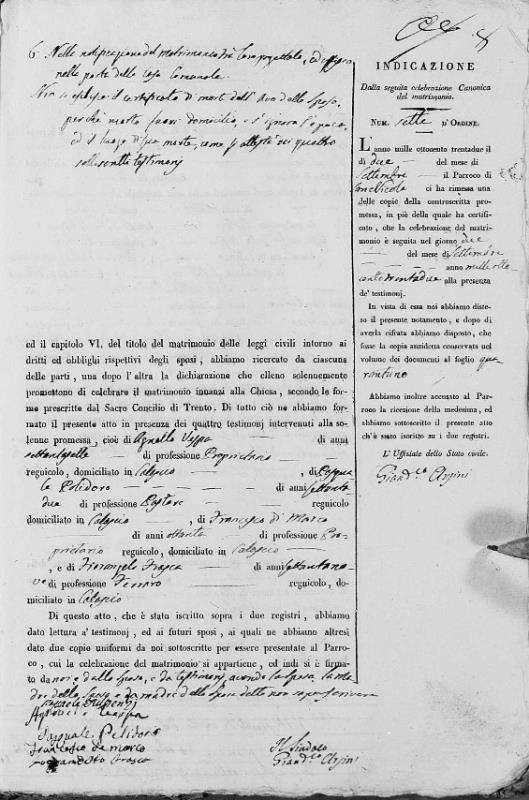 6. Nelle notificazione del matrimonio
nelle porte della casa Comunale.
Non si esibisce il certificato di morte dell' Avo dello Sposo,
perchè morto fuori domicilio, e s' ignora l'epoca,
ed il luogo di sua morte, come si attesta dei quattro
sottoscritti testimonj
ed il capitolo VI, del titolo del matrimonio delle leggi civili intorno ai
dritti ed obblighi rispettivi degli sposi, abbiamo ricercato da ciascuna
delle parti, una dopo l'altra la dichiarazione che elleno solennemente
promettono di celebrare il matrimonio innanzi alla Chiesa, secondo le for-
me prescritte dal Sacro Concilio di Trento. Di tutto ciò ne abbiamo for-
mato il presente atto in presenza dei quattro testimonj intervenuti alla so-
lenne promessa, cioè di Agnello Vespa di anni
settantasette di professione Proprietario
regnicolo, domiciliato in Calascio, di Pasqua
le Polidoro di anni settanta
due di professione Pastore regnicolo
domiciliato in Calascio, di Francesco di Marco
di anni ottanta di professione Pro-
prietario regnicolo, domiciliato in Calascio
, e di Fiorangelo Frasca di anni settantano-
ve di professione Ferraro regnicolo, do-
miciliato in Calascio
Di questo atto, che è stato iscritto sopra i due registri, abbiamo
dato lettura a' testimonj, ed ai futuri sposi, ai quali ne abbiamo altresì
date due copie uniformi da noi sottoscritte per essere presentate al Parro-
co, cui la celebrazione del matrimonio si appartiene, ed indi si è firma-
to da noi e dallo Sposo, e da testimonj avendo la sposa, la ma
dre dello Sposo e la madre della Sposa detto non saper scrivere
Pasquale Polidoro
Francesco de marco
Il Sindaco
Giand.co Arpini
INDICAZIONE
Della seguita celebrazione Canonica
del matrimonio.
Num. sette d'Ordine.
L'anno mille ottocento trentadue il
dì due del mese di
Settembre il Parroco di
San Nicola ci ha rimessa una
delle copie della controscritta pro-
messa, in piè della quale ha certifi-
cato, che la celebrazione del matri-
monio è seguita nel giorno due
del mese di Settembre
anno mille otto
cento trentadue alla presenza
de' testimonj.
In vista di essa noi abbiamo diste-
so il presente notamento, e dopo di
averla cifrata abbiamo disposto, che
fusse la copia anzidetta conservata nel
volume dei documenti al foglio qua
rantuno
Abbiamo inoltre accusato al Par-
roco la ricezione della medesima, ed
abbiamo sottoscritto il presente atto
ch'è stato iscritto su i due registri.
L' Uffiziale dello Stato civile.
Giand.co Arpini